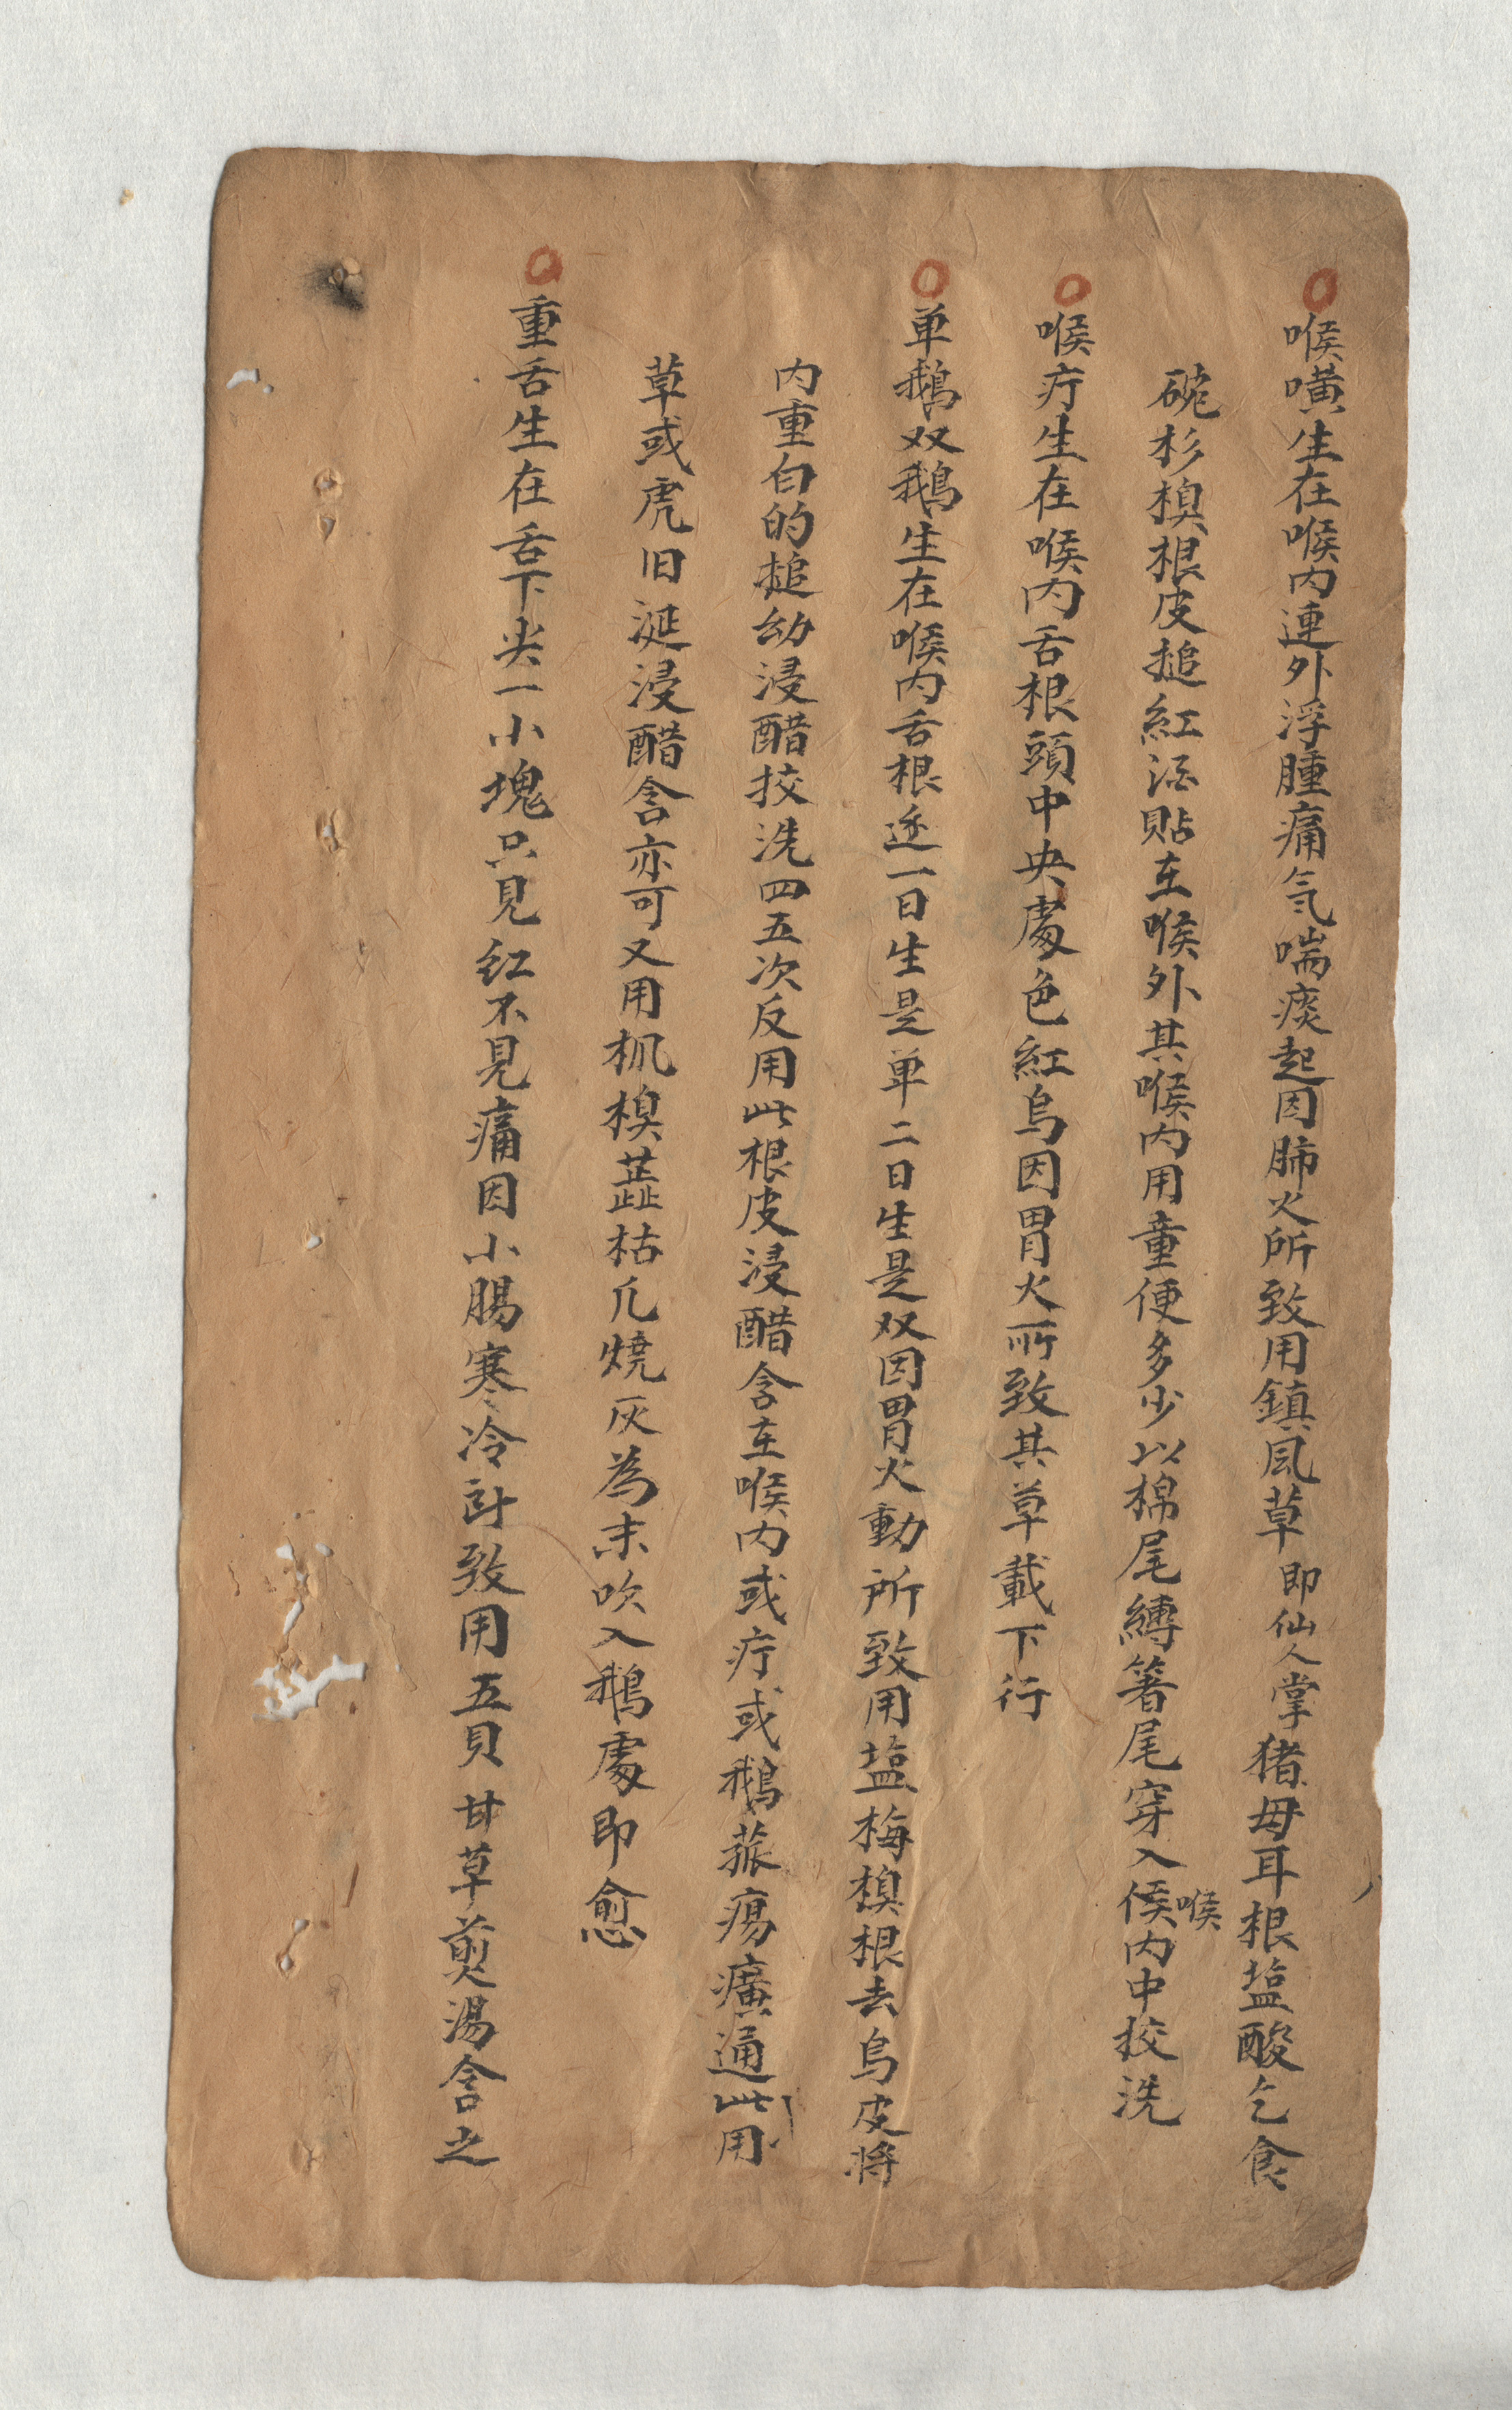 ○喉㖽生在喉内連外浮腫痛气喘痰起因肺火所致用鎮風草即仙人掌猪母耳根塩酸乞食
碗杉模根皮搥紅酒貼在喉外其喉内用童便多少以棉尾縛箸尾穿入㑋喉内中挍洗
○喉疔生在喉内舌根頭中央處色紅烏因胃火所致其草載下行
○单鵝双鵝生在喉内舌根邊一日生是单二日生是双因胃火動所致用塩梅模根去烏皮将
内重白的搥幼浸醋挍洗四五次反用此根皮浸醋含在喉内或疔或鵝瘍癀通此用
草或虎旧涎浸醋含亦可又用模枯几燒灰為末吹入鵝處即愈
○重舌生在舌下尖一小塊只見红不見痛因小腸寒冷所致用五貝甘草煎湯含之